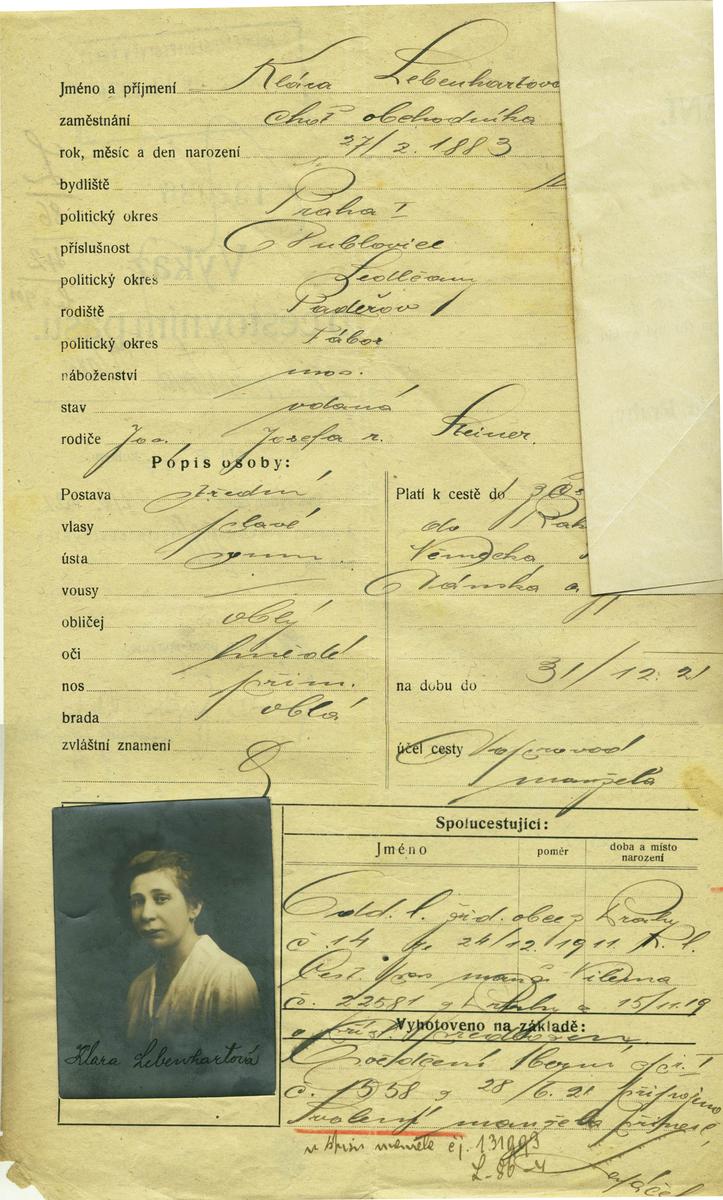 Jméno a příjmení Klára Lebenhartova
zaměstnání choť obchodníka
rok, měsíc a den narození 27/2. 1883
bydliště
politický okres Praha I
příslušnost Publovice
politický okres Sedlčany
rodiště Paděřov
politický okres Tábor
náboženství mos.
stav vdaná
rodiče Jos. Josefa r. Steiner.
Popis osoby:
Postava střední
vlasy plavé
ústa
vousy
obličej oblý
oči hnědé
nos přim.
brada oblá
zvláštní znamení
Platí k cestě do
do
Německa
Dánska a
na dobu do 31/12. 21
účel cesty Doprovod
manžela
Spolucestující:
Jméno poměr doba a místo narození
Odd. l. žid. obce z Prahy
č. 14 24/12. 1911.
Cest. pas Viléma
č. 22581 z Prahy 15/11.19
Vyhotoveno na základě:
č. 1558 z 28/6. 21 připojeno
Svolení manžela
v spisu manžela čj. 131993
Klara Lebenhartová